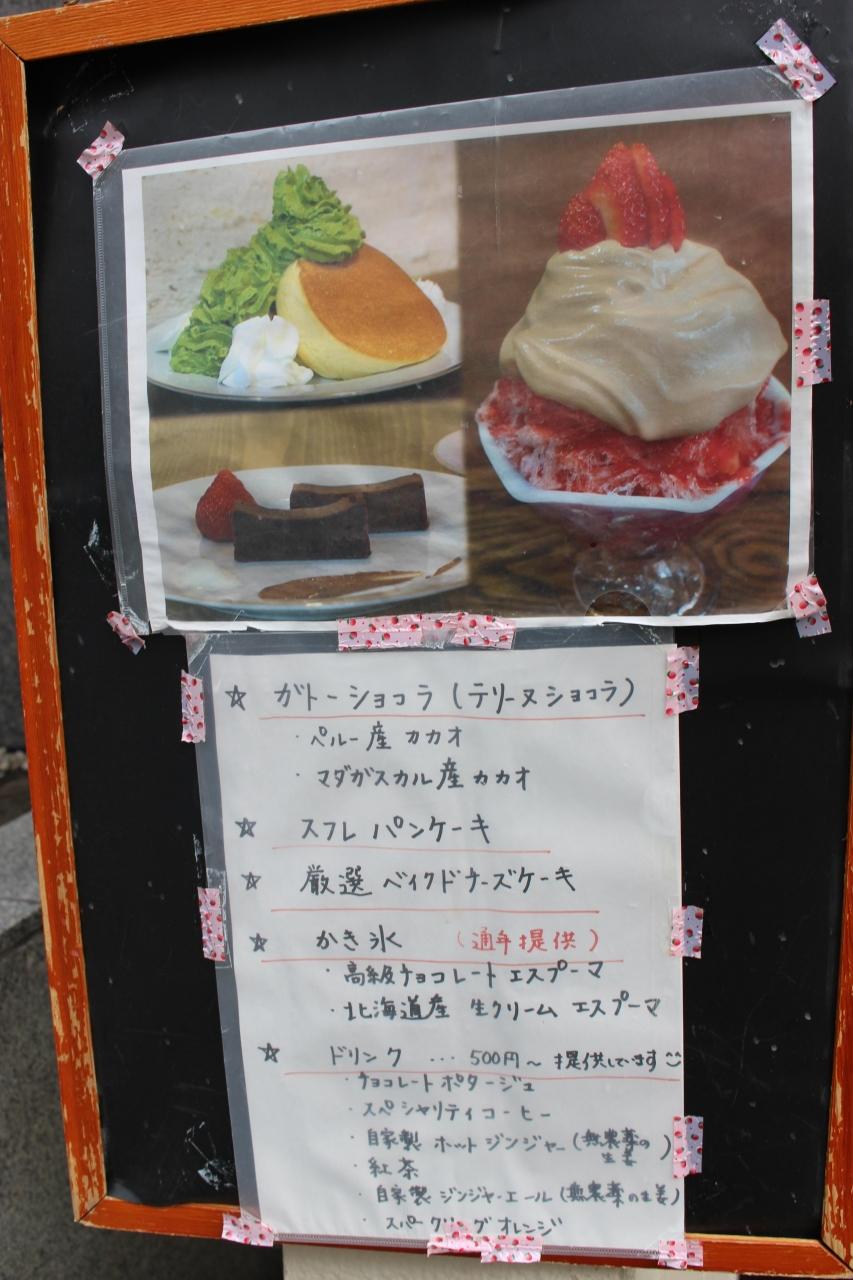 ☆ ガトーショコラ (テリーヌショコラ)
・ペルー産カカオ
・マダガスカル産カカオ
☆ スフレ パンケーキ
☆ 厳選 ベイクドチーズケーキ
☆ かき氷 (通年提供)
・高級チョコレート エスプーマ
・北海道産 生クリーム エスプーマ
☆ ドリンク ... 500円〜 提供しています
・チョコレートポタージュ
・スペシャリティコーヒー
・自家製 ホットジンジャー (無農薬の生姜)
・紅茶
・自家製 ジンジャーエール (無農薬の生姜)
・スパークリングオレンジ